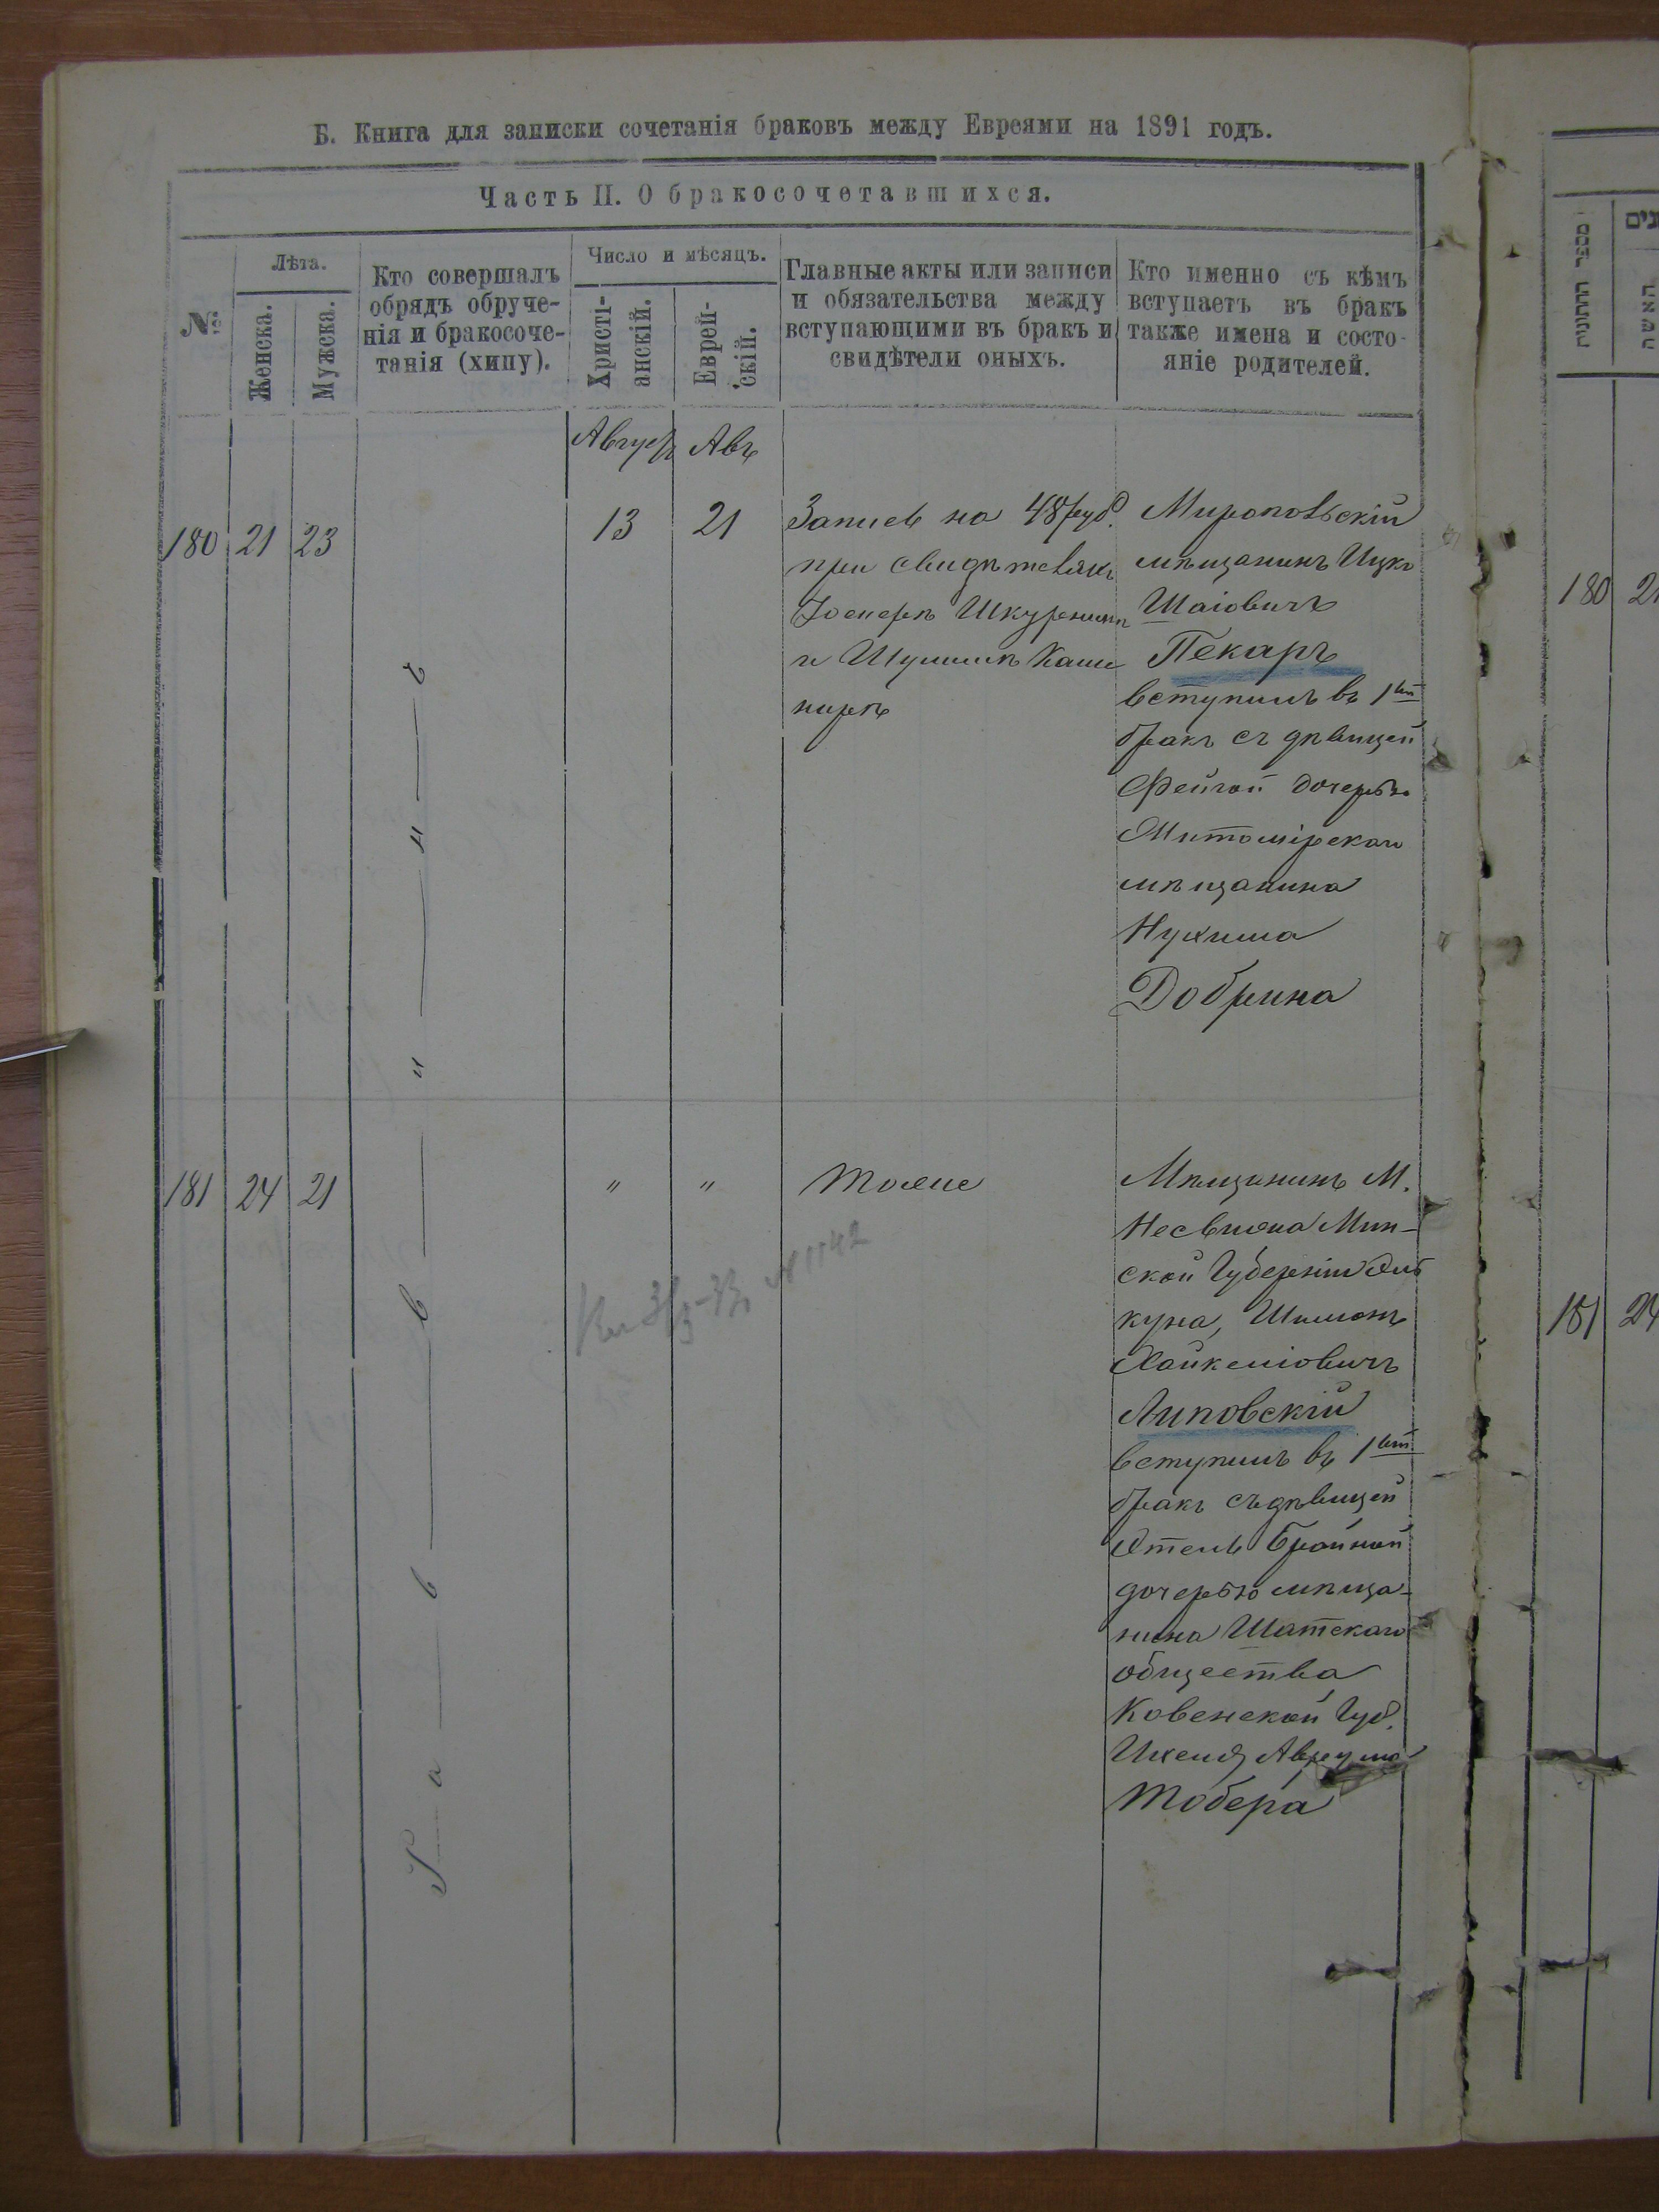 Б. Книга для записки сочетанія браковъ между Евреями на 1891 годъ.
Часть II. О бракосочетавшихся.
№
Лѣта.
Женска.
Мужска.
Кто совершалъ
обрядъ обруче-
нія и бракосоче-
танія (хипу).
Число и мѣсяцъ.
Христі-
анскій.
Еврей-
скій.
Главные акты или записи
и обязательства между
вступающими въ бракъ и
свидѣтели оныхъ.
Кто именно съ кѣмъ
вступаетъ въ бракъ
также имена и состо-
яніе родителей.
Августъ Авъ
180 21 23
13 21
Запись на 48 руб.
при свидѣтеляхъ
и Шулимѣ Каш
нирѣ
Миропольскій
мѣщанинъ Ицко
Шаіовичъ
Пекаръ
вступилъ въ 1ый
бракъ съ дѣвицей
Фейгой дочерью
Житомірскаго
мѣщанина
Нухима
Добрина
Р а в в и н ъ
181 24 21
" "
тоже
№ 1142
Мѣщанинъ М.
Несвижа Мин-
ской Губерніи
Шимонъ
Хайкеліовичъ
Липовскій
вступилъ въ 1ый
бракъ съ дѣвицей
Брайной
дочерью мѣща-
нина Шатскаго
общества
Ковенской Губ.
Тобера
מספר החתונות
האשה
180 21
181 24